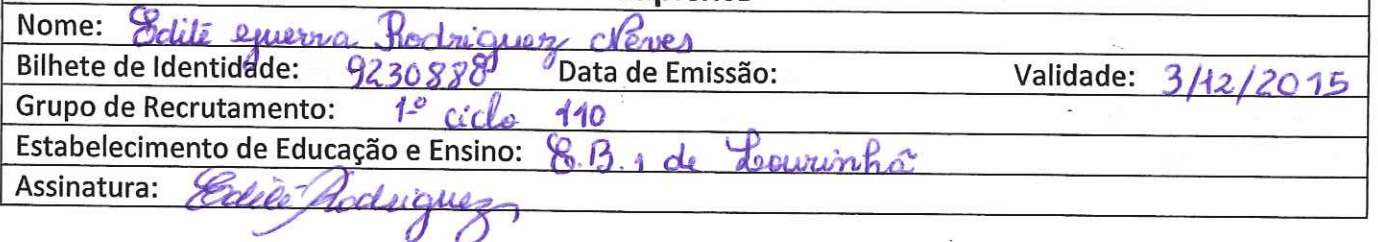 Nome: Edite Guerra Rodriguez Neves
Bilhete de Identidade: 9230888 Data de Emissão: Validade: 3/12/2015
Grupo de Recrutamento: 1º ciclo 110
Estabelecimento de Educação e Ensino: E.B. 1 de Lourinhã
Assinatura: Edite Rodriguez